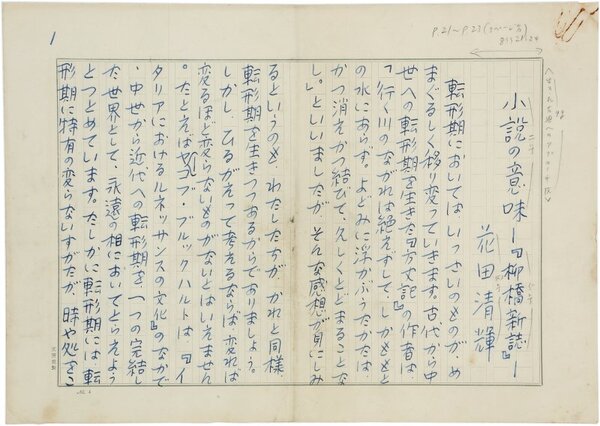 1
P.21〜P.23
小説の意味―『柳橋新誌』―
花田清輝
転形期においてはいっさいのものが、め
まぐるしく移り変っていきます。古代から中
世への転形期を生きた『方丈記』の作者は、
「行く川のながれは絶えずして、しかももと
の水にあらず。よどみに浮かぶうたかたは、
かつ消えかつ結びて、久しくとどまることな
し。」といいましたが、そんな感想が身にしみ
るというのも、わたしたちが、かれと同様、
転形期を生きつつあるからでありましょう。
しかし、ひるがえって考えるならば、変れば
変るほど変らないものがないとはいえません
。たとえばヤコブ・ブルックハルトは『イ
タリアにおけるルネッサンスの文化』のなかで
、中世から近代への転形期を、一つの完結し
た世界として、永遠の相においてとらえよう
とつとめています。たしかに転形期には転
形期に特有の変らないすがたが、時や処をこ